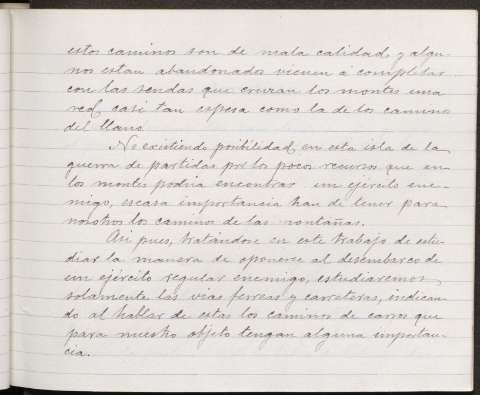 estos caminos son de mala calidad, y algu-
nos estan abandonados vienen á completar
con las sendas que cruzan los montes una
red casi tan espesa como la de los caminos
del llano.
No existiendo posibilidad en esta isla de la
guerra de partidas por los pocos recursos que en
los montes podria encontrar un ejército ene-
migo, escasa importancia han de tener para
nosotros los caminos de las montañas.
Asi pues, tratándose en este trabajo de estu-
diar la manera de oponerse al desembarco de
un ejército regular enemigo, estudiaremos
solamente las vias ferreas y carreteras, indican-
do al hablar de estas los caminos de carros que
para nuestro objeto tengan alguna importan-
cia.